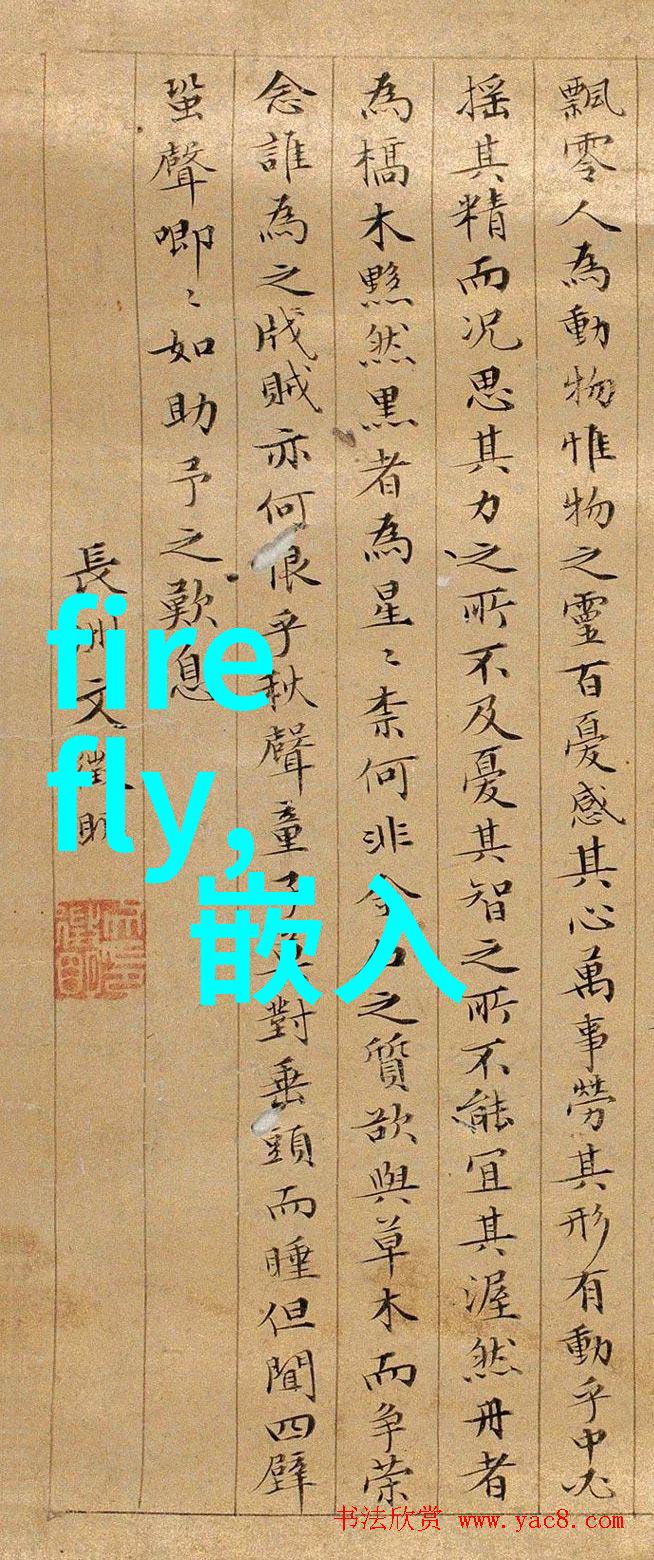 飄零人為動物惟物之靈百憂感其心萬事勞其形有動乎中必
搖其精而况思其力之所不及憂其智之所不能宜其渥然丹者
為槁木黟然黒者為星〻柰何非金石之質欲與草木而争荣
念誰為之戕賊亦何恨乎秋聲童子莫對垂頭而睡但聞四壁
蛩聲唧〻如助予之歎息
長洲文徵明
fire
fly,
嵌入
书法欣赏 www.yac8.com